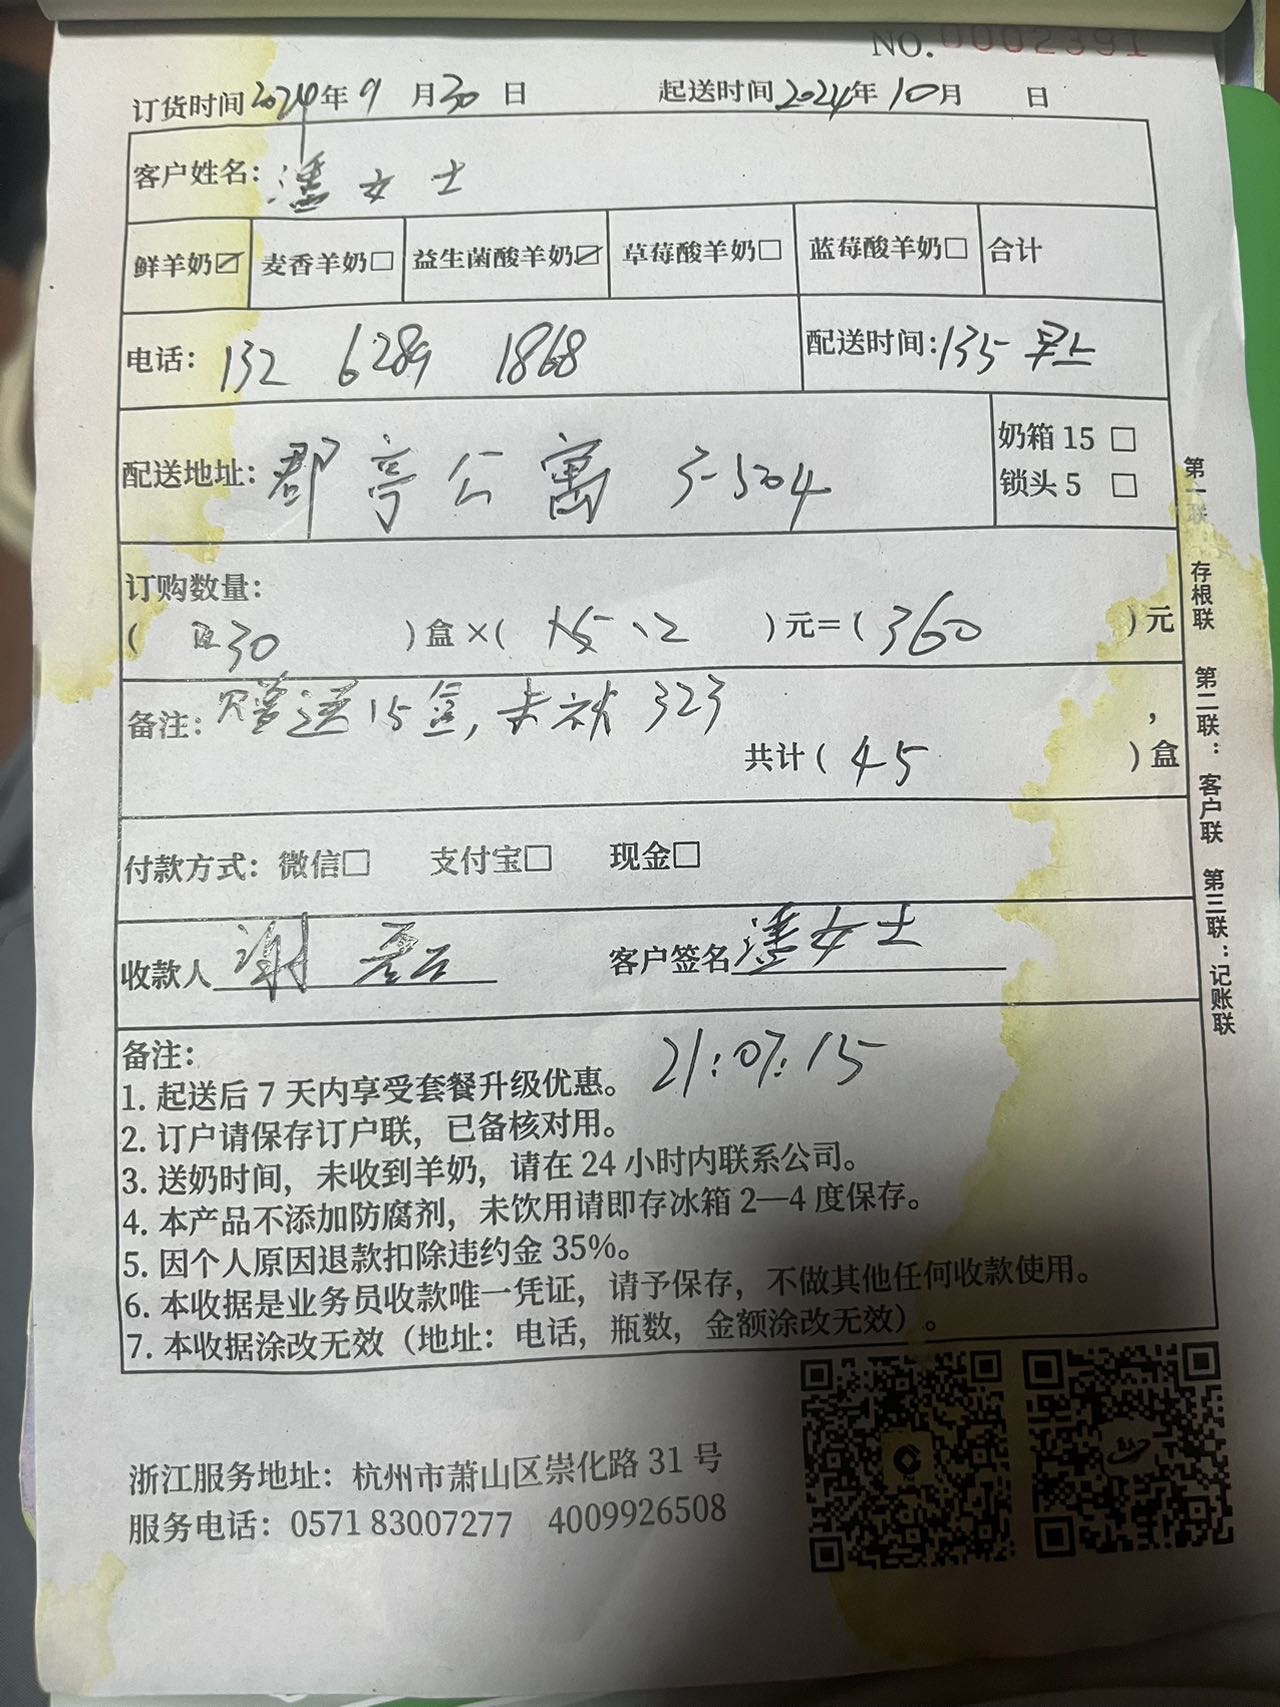 NO.0002391
订货时间2024年9月30日 起送时间2024年10月 日
客户姓名：潘女士
鲜羊奶☑ 麦香羊奶□ 益生菌酸羊奶☑ 草莓酸羊奶□ 蓝莓酸羊奶□ 合计
电话：132 6289 1868 配送时间:135 早上
配送地址：郡亭公寓 3-504
奶箱 15 □
锁头 5 □
订购数量：
( 30 ) 盒 ×( 12 ) 元＝( 360 ) 元
备注：赠送15盒, 323 ，
共计 ( 45 ) 盒
付款方式：微信□ 支付宝□ 现金□
收款人 谢 客户签名 潘女士
备注： 21:07:15
1. 起送后 7 天内享受套餐升级优惠。
2. 订户请保存订户联，已备核对用。
3. 送奶时间，未收到羊奶，请在 24 小时内联系公司。
4. 本产品不添加防腐剂，未饮用请即存冰箱 2—4 度保存。
5. 因个人原因退款扣除违约金 35%。
6. 本收据是业务员收款唯一凭证，请予保存，不做其他任何收款使用。
7. 本收据涂改无效（地址：电话，瓶数，金额涂改无效）。
第一联：存根联 第二联：客户联 第三联：记账联
浙江服务地址：杭州市萧山区崇化路 31 号
服务电话：0571 83007277 4009926508